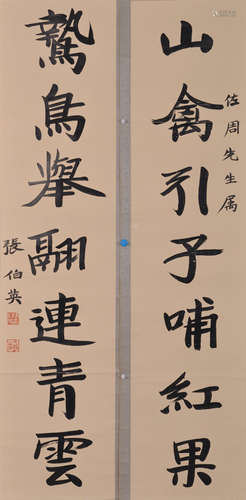 山禽引子哺紅果
佐周先生属
鷙鳥舉翮連青雲
張伯英